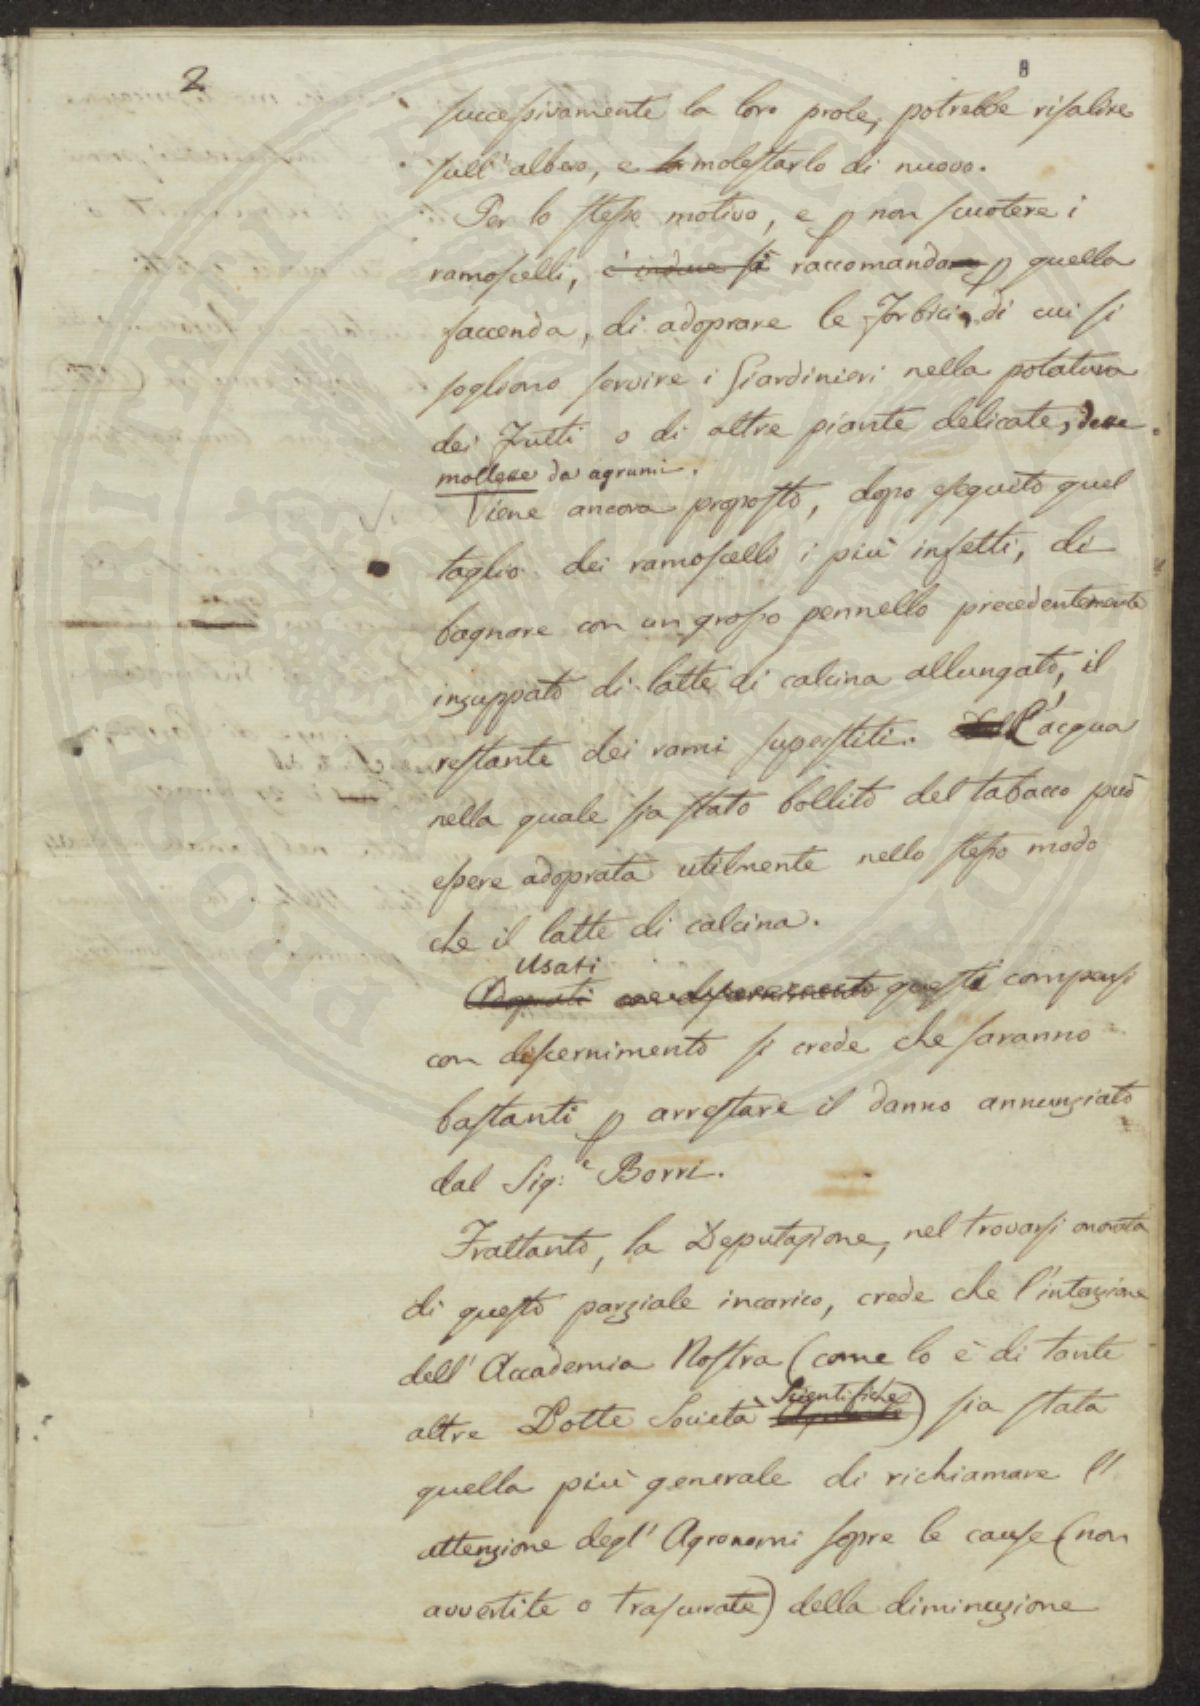 2
8
successivamente la loro prole, potrebbe risalire
sull'albero, e molestarlo di nuovo.
Per lo stesso motivo, e p non scuotere i
ramoscelli, è induce si raccomanda p quella
faccenda, di adoprare le Forbici, di cui si
sogliono servire i Giardinieri nella potatura
dei Frutti o di altre piante delicate, dette
mollette da agrumi.
Viene ancora proposto, dopo eseguito quel
taglio dei ramoscelli i più infetti, di
bagnare con un grosso pennello precedentemente
inzuppato di latte di calcina allungato, il
restante dei rami superstiti. L'acqua
nella quale sia stato bollito del tabacco può
essere adoprata utilmente nello stesso modo
che il latte di calcina.
Usati
Adoprati con discernimento questi compensi
con discernimento si crede che saranno
bastanti p arrestare il danno annunziato
dal Sig:e Borri.
Frattanto, la Deputazione, nel trovarsi onorata
di questo parziale incarico, crede che l'intenzione
dell'Accademia Nostra (come lo è di tante
altre Dotte Società Scientifiche) sia stata
quella più generale di richiamare l'
attenzione degl'Agronomi sopra le cause (non
avvertite o trascurate) della diminuzione